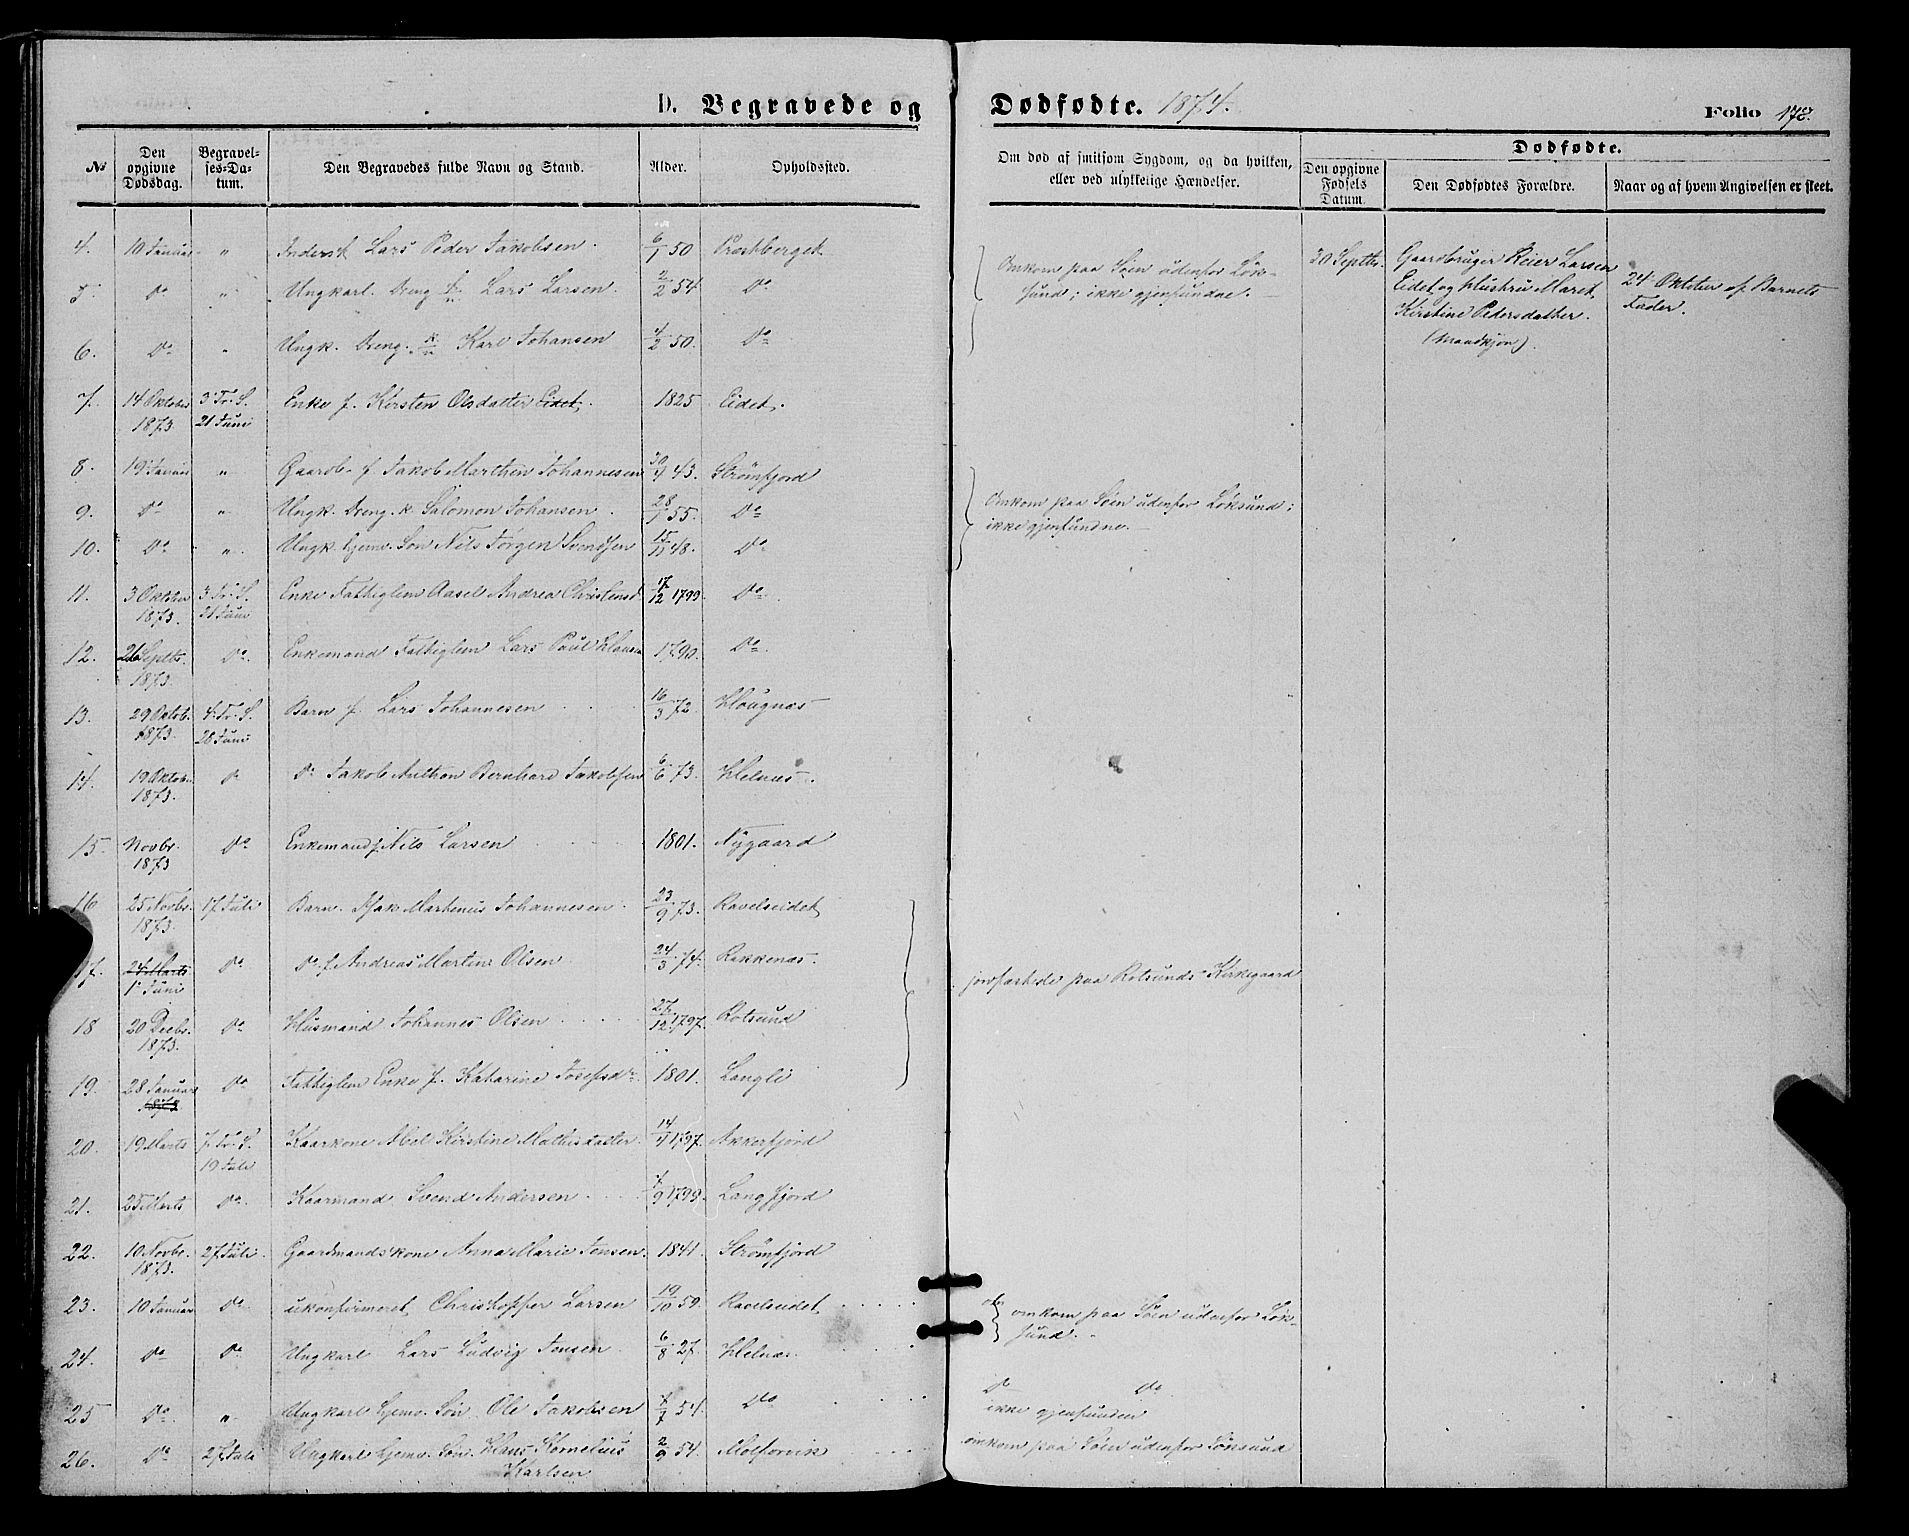 D. Begravede og Dødfødte. 1874. Folio 178.
No
Den opgivne Dødsdag.
Begravelses-Datum.
Den Begravedes fulde Navn og Stand.
Alder.
Opholdssted.
Om død af smitsom Sygdom, og da hvilken, eller ved ulykkelige Hændelser.
Dødfødte.
Den opgivne Fødsels Datum.
Den Dødfødtes Forældre.
Naar og af hvem Angivelsen er skeet.
4. 10 Januar " Inderst Lars Peder Jakobsen. 6/1 50 Præstberget
5. Do " Ungkarl. Dreng Lars Larsen. 2/2 54. Do
Omkom paa Søen udenfor Løksund; ikke gjenfundne.
30 Septbr.
Gaardbruger Reier Larsen
Eidet og Hustru Maret
Kirstine Pedersdatter.
(Mandkjøn).
24 Oktober af Barnets
Fader.
6. Do " Ungk. Dreng. Karl Johansen 4/2 50. Do
7. 14 Oktober 1873. 3 Tr. S. 21 Juni Enke f. Kirsten Olsdatter Eidet. 1825 Eidet.
8. 19 Januar " Gaardb. f. Jakob Marthin Johannesen 30/4 43. Strømfjord
9. Do " Ungk. Dreng. k. Salomon Johansen. 28/1 55. Do
10. Do " Ungk. hjemv. Søn Nils Jørgen Svendsen 15/11 48. Do
Omkom paa Søen udenfor Løksund;
ikke gjenfundne.
11. 3 Oktober 1873. 3 Tr. S. 21 Juni Enke Fattiglem Aasel Andrea Christensd. 17/12 1799. Do
12. 26 Septbr. 1873. Do. Enkemand Fattiglem Lars Paul Hansen 1790. Do.
13. 29 Oktob. 1873. 4. Tr. S. 28 Juni Barn f. Lars Johannesen 16/3 72 Hougnæs
14. 19 Oktobr. 1873. Do Do Jakob Anthon Bernhard Jakobsen 6/6 73. Helnæs.
15 Novbr. 1873 Do Enkemand f. Nils Larsen 1801. Nygaard
16 25 Novbr. 1873. 17 Juli Barn. Isak Marthinus Johannesen 23/9 73. Ravelseidet
17. 24 Marts 1 Juni Do Do f. Andreas Martin Olsen 24/3 74. Rakkenæs.
jordfæstede paa Rotsunds Kirkegaard
18 20 Decbr. 1873. Do Husmand Johannes Olsen 27/12 1797. Rotsund
19. 28 Januar 1873 Do Fattiglem Enke f. Katarine Josefsdr. 1801. Langli
20. 19 Marts 7. Tr. S. 19 Juli Kaarkone Abel Kirstine Mathisdatter. 14/4 1797. Akkerfjord
21. 25 Marts Do. Kaarmand Svend Andersen 1799. Langfjord
22. 10 Novbr. 1873. 27 Juli. Gaardmandskone Anna Marie Jensen. 1841. Strømfjord
23. 10 Januar Do ukonfirmeret Christopher Larsen 19/10 59. Ravelseidet
omkom paa Søen udenfor Løksund.
24. Do Do Ungkarl Lars Ludvig Jensen 6/8 27. Helnæs
25 Do. " Ungkarl hjemv. Søn Ole Jakobsen 7/7 54. Do
Do Do
ikke gjenfunden
26. Do 27 Juli Ungkarl hjemv. Søn. Hans Kornelius Karlsen 2/9 54.
omkom paa Søen udenfor Løksund